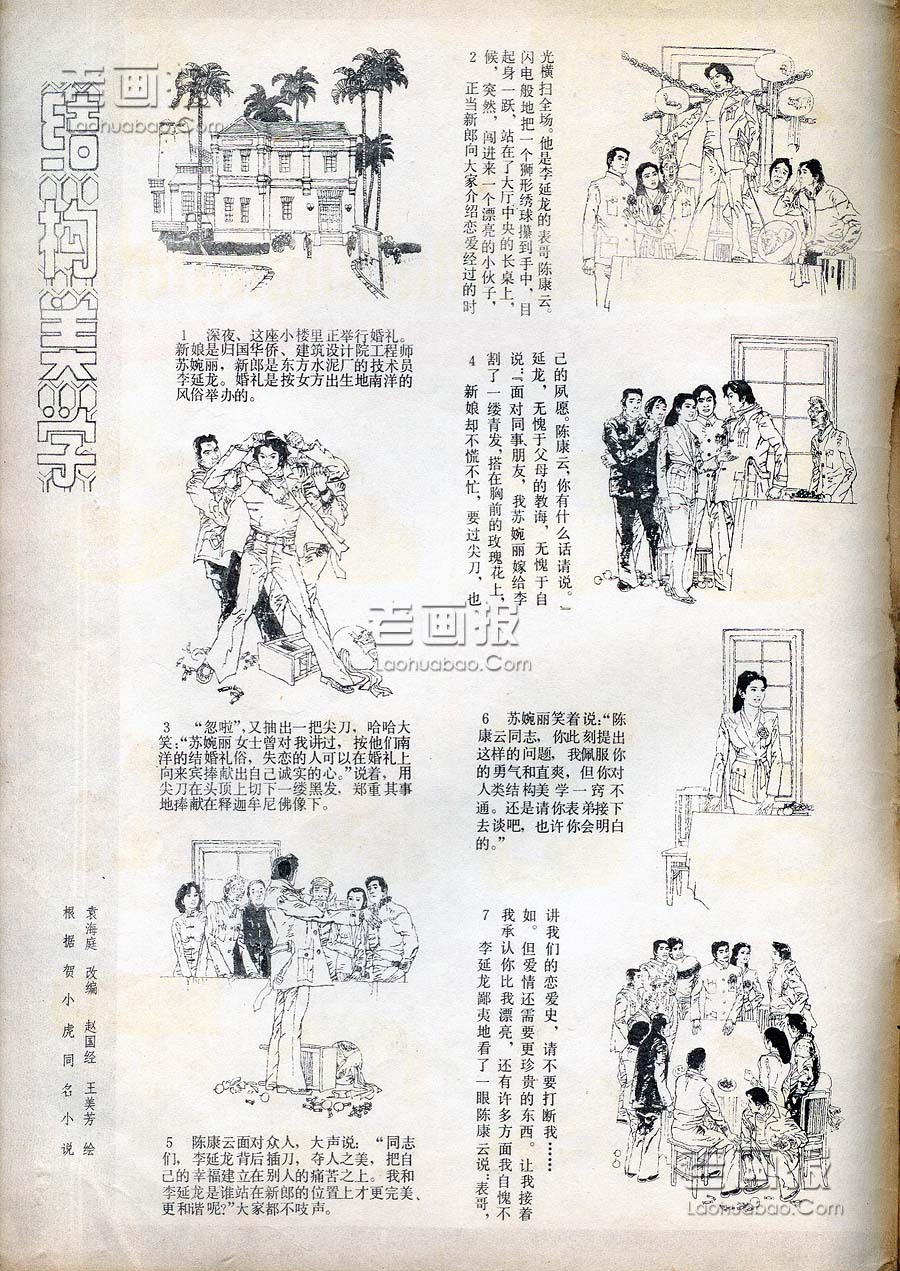 结构美学
根据贺小虎同名小说
袁海庭 改编 赵国经 王美芳 绘
1 深夜、这座小楼里正举行婚礼。
新娘是归国华侨、建筑设计院工程师
苏婉丽，新郎是东方水泥厂的技术员
李延龙。婚礼是按女方出生地南洋的
风俗举办的。
2 正当新郎向大家介绍恋爱经过的时
候，突然，闯进来一个漂亮的小伙子，
起身一跃，站在了大厅中央的长桌上，
闪电般地把一个狮形绣球攥到手中，目
光横扫全场。他是李延龙的表哥陈康云。
3 “忽啦”，又抽出一把尖刀，哈哈大
笑：“苏婉丽女士曾对我讲过，按他们南
洋的结婚礼俗，失恋的人可以在婚礼上
向来宾捧献出自己诚实的心。”说着，用
尖刀在头顶上切下一缕黑发，郑重其事
地捧献在释迦牟尼佛像下。
4 新娘却不慌不忙，要过尖刀，也
割了一缕青发，搭在胸前的玫瑰花上，
说：『面对同事朋友，我苏婉丽嫁给李
延龙，无愧于父母的教诲，无愧于自
己的夙愿。陈康云，你有什么话请说。』
5 陈康云面对众人，大声说：“同志
们，李延龙背后插刀，夺人之美，把自
己的幸福建立在别人的痛苦之上。我和
李延龙是谁站在新郎的位置上才更完美、
更和谐呢？”大家都不吱声。
6 苏婉丽笑着说：“陈
康云同志，你此刻提出
这样的问题，我佩服你
的勇气和直爽，但你对
人类结构美学一窍不
通。还是请你表弟接下
去谈吧，也许你会明白
的。”
7 李延龙鄙夷地看了一眼陈康云说：表哥，
我承认你比我漂亮，还有许多方面我自愧不
如。但爱情还需要更珍贵的东西。让我接着
讲我们的恋爱史，请不要打断我……
老画报
Laohuabao.Com
老画报
Laohuabao.Com
老画报
Laohuabao.Com